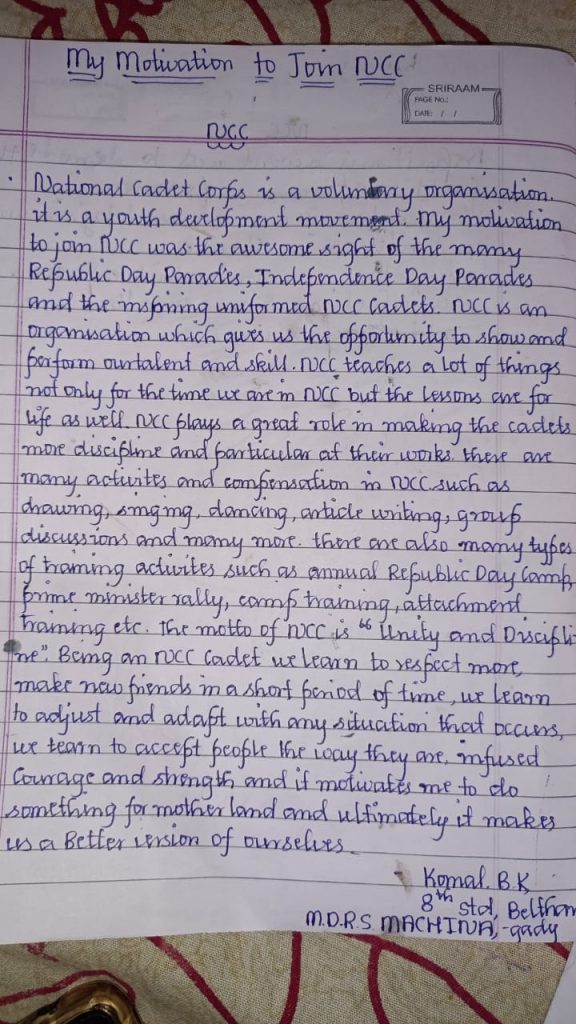 My Motivation to Join NCC
SRIRAAM
PAGE No.:
DATE: / /
NCC
. National Cadet Corps is a voluntary organisation.
it is a youth development movement. My motivation
to join NCC was the awesome sight of the many
Republic Day Parades, Independence Day Parades
and the inspiring uniformed NCC Cadets. NCC is an
organisation which gives us the opportunity to show and
perform our talent and skill. NCC teaches a lot of things
not only for the time we are in NCC but the lessons are for
life as well. NCC plays a great role in making the cadets
more discipline and particular at their works. there are
many activites and compensation in NCC such as
drawing, singing, dancing, article writing, group
discussions and many more. there are also many types
of training activites such as annual Republic Day Camp,
prime minister rally, camp training, attachment
training etc. The motto of NCC is "Unity and Discipli-
ne". Being an NCC Cadet we learn to respect more,
make new friends in a short period of time, we learn
to adjust and adapt with any situation that occurs,
we tearn to accept people the way they are, infused
Courage and strength and it motivates me to do
something for motherland and ultimately it makes
us a Better version of ourselves.
- Komal. B.K
8th std, Belthan
M.D.R.S MACHINA, -gady